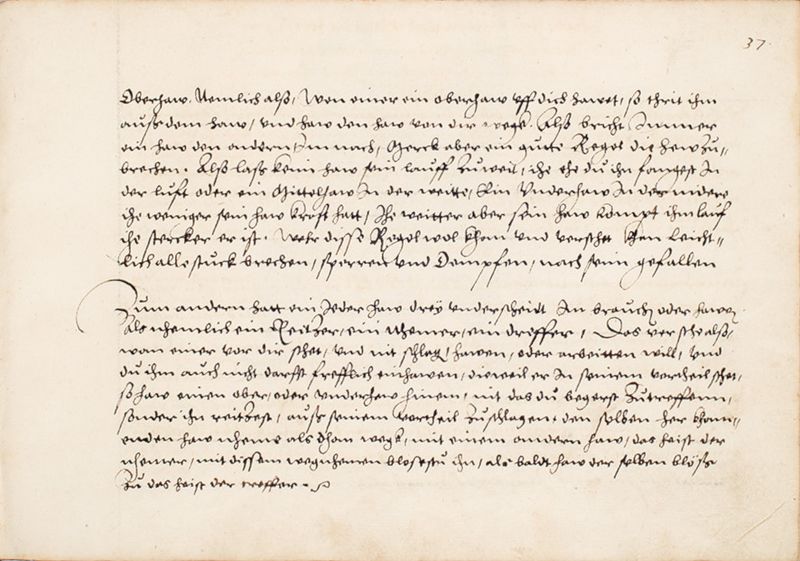 37.
Oberhaw. Nemlich also, Wen einer ein oberhaw vff dich hawet, so thrit ihm
auß dem haw, vnd haw den haw von dir wegk. Also bricht Immer
ein haw den andern, Im nach, Merck aber ein gutte Regel die hew zu„
brechen. Also lass keim haw sein lauff zu weit, ihe ehe du ihn fangest In
der luft oder ein Mittelhaw In der weitte, Ein Vnderhaw In der nidere
ihe weniger sein haw kraft hatt, Ihe weitter aber sein haw kompt ihm lauf
ihe stercker er ist. Wehr disse Regel wol khan vnd verstehet kan leicht„
lich alle stuck brechen, sperren vnd Dempfen, nach seim gefallen
Zum andern hatt ein Jeder haw drey vnderscheidt In brauch oder hawen
Als nhemlich ein Reitzer, ein Nhemer, ein dreffer, Das verstehe also,
wan einer vor dir stehet, vnd nit schlag, hawen, oder arbeitten will, vnd
du ihm auch nicht darfst frefflich einhawen, dieweil er In seinem vortheil stehet,
so haw einen ober, oder vnderhaw hinein, nit das du begerst zutreffenn,
sonder ihn reitzest, auß seinem vortheil zuschlagen, den selben her khom„
enden haw nheme als dhan wegk, mit einem andern haw, das heist der
nhemer, mit dissem wegnhemen blosestu ihn, als baldt haw der selben blöße
zu das heist der treffer.